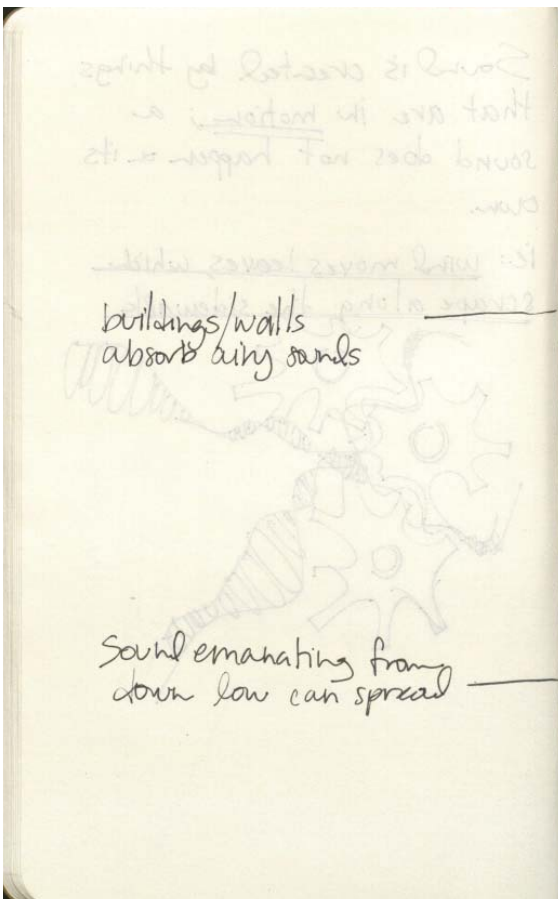 buildings/walls
absorb airy sounds
Sound emanating from
down low can spread